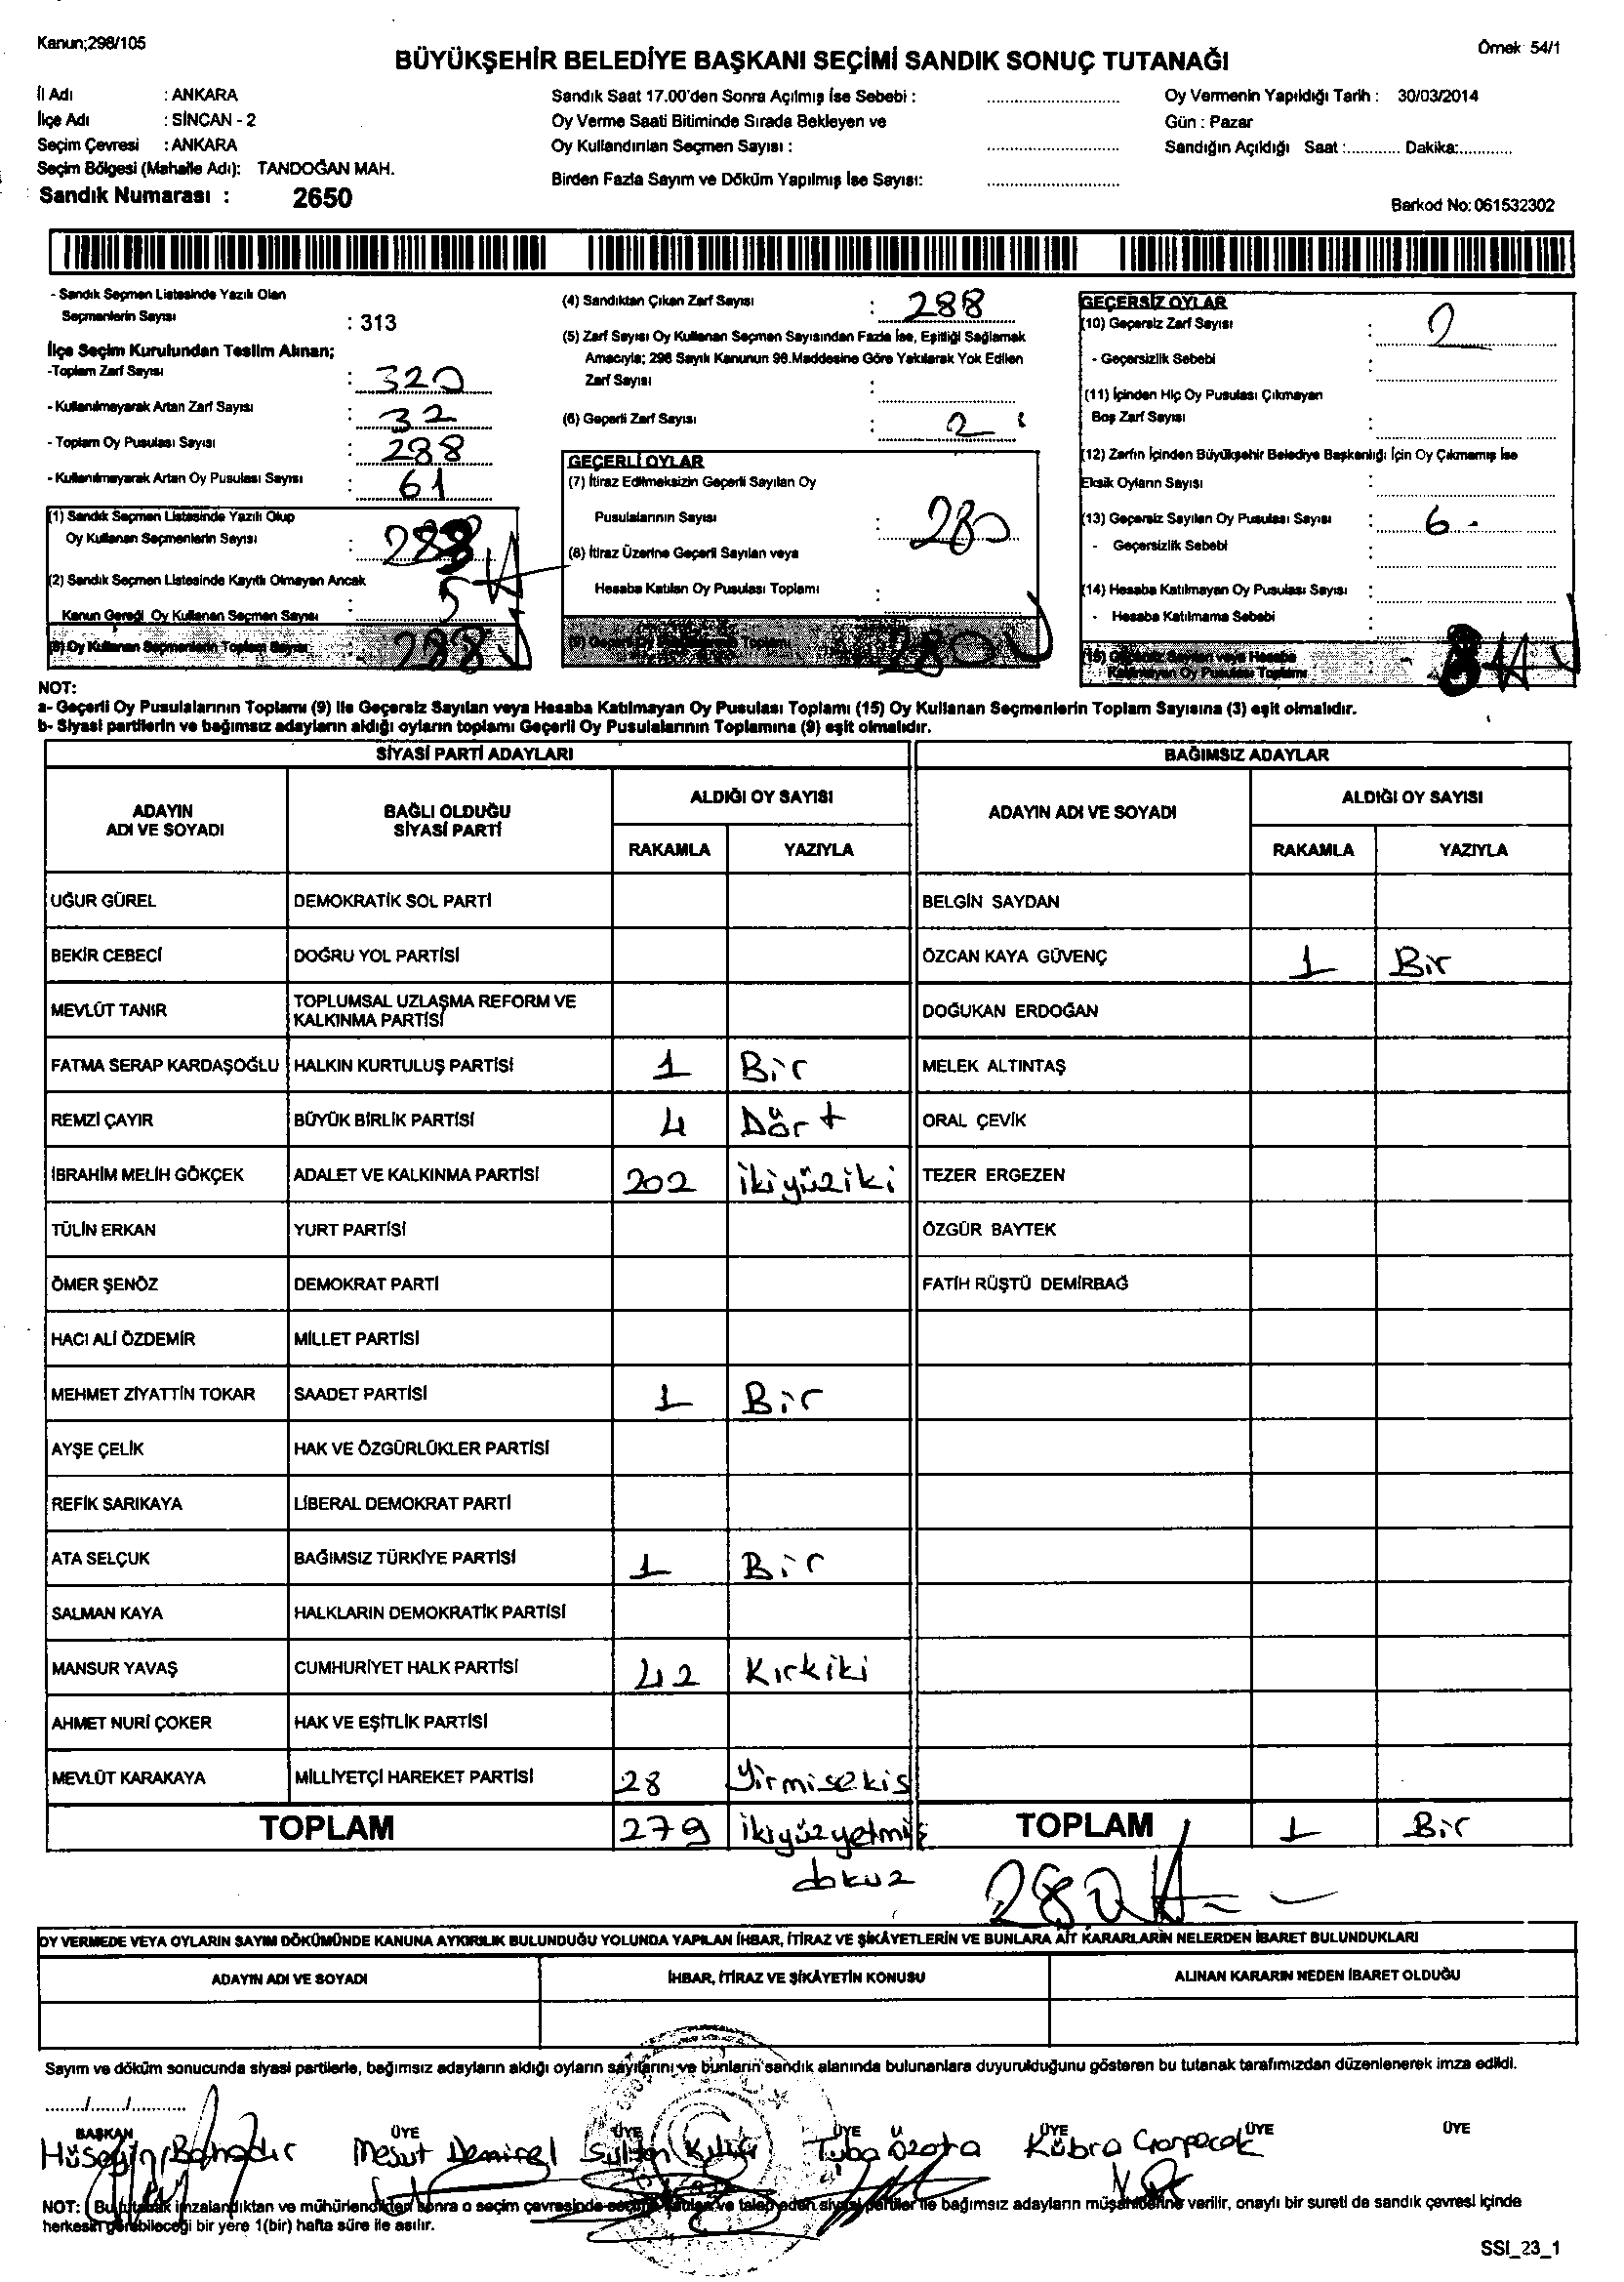 Kanun;298/105
Örnek 54/1
BÜYÜKŞEHİR BELEDİYE BAŞKANI SEÇİMİ SANDIK SONUÇ TUTANAĞI
İl Adı : ANKARA
İlçe Adı : SİNCAN - 2
Seçim Çevresi : ANKARA
Seçim Bölgesi (Mahalle Adı): TANDOĞAN MAH.
Sandık Numarası : 2650
Sandık Saat 17.00'den Sonra Açılmış İse Sebebi : ..............................
Oy Verme Saati Bitiminde Sırada Bekleyen ve
Oy Kullandırılan Seçmen Sayısı : ..............................
Birden Fazla Sayım ve Döküm Yapılmış İse Sayısı: ..............................
Oy Vermenin Yapıldığı Tarih : 30/03/2014
Gün : Pazar
Sandığın Açıldığı Saat :............ Dakika:............
Barkod No: 061532302
- Sandık Seçmen Listesinde Yazılı Olan
Seçmenlerin Sayısı : 313
İlçe Seçim Kurulundan Teslim Alınan;
-Toplam Zarf Sayısı : 320
- Kullanılmayarak Artan Zarf Sayısı : 32
- Toplam Oy Pusulası Sayısı : 288
- Kullanılmayarak Artan Oy Pusulası Sayısı : 61
(1) Sandık Seçmen Listesinde Yazılı Olup
Oy Kullanan Seçmenlerin Sayısı : 288
(2) Sandık Seçmen Listesinde Kayıtlı Olmayan Ancak
Kanun Gereği Oy Kullanan Seçmen Sayısı :
(3) Oy Kullanan Seçmenlerin Toplam Sayısı : 288
(4) Sandıktan Çıkan Zarf Sayısı : 288
(5) Zarf Sayısı Oy Kullanan Seçmen Sayısından Fazla İse, Eşitliği Sağlamak
Amacıyla; 298 Sayılı Kanunun 98.Maddesine Göre Yakılarak Yok Edilen
Zarf Sayısı :
(6) Geçerli Zarf Sayısı : 2
GEÇERLİ OYLAR
(7) İtiraz Edilmeksizin Geçerli Sayılan Oy
Pusulalarının Sayısı : 280
(8) İtiraz Üzerine Geçerli Sayılan veya
Hesaba Katılan Oy Pusulası Toplamı :
(9) Geçerli Oy Pusulalarının Toplamı 280
GEÇERSİZ OYLAR
(10) Geçersiz Zarf Sayısı : 2
- Geçersizlik Sebebi :
(11) İçinden Hiç Oy Pusulası Çıkmayan
Boş Zarf Sayısı :
(12) Zarfın İçinden Büyükşehir Belediye Başkanlığı İçin Oy Çıkmamış İse
Eksik Oyların Sayısı :
(13) Geçersiz Sayılan Oy Pusulası Sayısı : 6
- Geçersizlik Sebebi :
(14) Hesaba Katılmayan Oy Pusulası Sayısı :
- Hesaba Katılmama Sebebi :
(15) Geçersiz Sayılan veya Hesaba
Katılmayan Oy Pusulası Toplamı : 8
NOT:
a- Geçerli Oy Pusulalarının Toplamı (9) ile Geçersiz Sayılan veya Hesaba Katılmayan Oy Pusulası Toplamı (15) Oy Kullanan Seçmenlerin Toplam Sayısına (3) eşit olmalıdır.
b- Siyasi partilerin ve bağımsız adayların aldığı oyların toplamı Geçerli Oy Pusulalarının Toplamına (9) eşit olmalıdır.
SİYASİ PARTİ ADAYLARI BAĞIMSIZ ADAYLAR
ADAYIN ADI VE SOYADI BAĞLI OLDUĞU SİYASİ PARTİ ALDIĞI OY SAYISI ADAYIN ADI VE SOYADI ALDIĞI OY SAYISI
RAKAMLA YAZIYLA RAKAMLA YAZIYLA
UĞUR GÜREL DEMOKRATİK SOL PARTİ BELGİN SAYDAN
BEKİR CEBECİ DOĞRU YOL PARTİSİ ÖZCAN KAYA GÜVENÇ 1 Bir
MEVLÜT TANIR TOPLUMSAL UZLAŞMA REFORM VE KALKINMA PARTİSİ DOĞUKAN ERDOĞAN
FATMA SERAP KARDAŞOĞLU HALKIN KURTULUŞ PARTİSİ 1 Bir MELEK ALTINTAŞ
REMZİ ÇAYIR BÜYÜK BİRLİK PARTİSİ 4 Dört ORAL ÇEVİK
İBRAHİM MELİH GÖKÇEK ADALET VE KALKINMA PARTİSİ 202 ikiyüziki TEZER ERGEZEN
TÜLİN ERKAN YURT PARTİSİ ÖZGÜR BAYTEK
ÖMER ŞENÖZ DEMOKRAT PARTİ FATİH RÜŞTÜ DEMİRBAĞ
HACI ALİ ÖZDEMİR MİLLET PARTİSİ
MEHMET ZİYATTİN TOKAR SAADET PARTİSİ 1 Bir
AYŞE ÇELİK HAK VE ÖZGÜRLÜKLER PARTİSİ
REFİK SARIKAYA LİBERAL DEMOKRAT PARTİ
ATA SELÇUK BAĞIMSIZ TÜRKİYE PARTİSİ 1 Bir
SALMAN KAYA HALKLARIN DEMOKRATİK PARTİSİ
MANSUR YAVAŞ CUMHURİYET HALK PARTİSİ 42 Kırkiki
AHMET NURİ ÇOKER HAK VE EŞİTLİK PARTİSİ
MEVLÜT KARAKAYA MİLLİYETÇİ HAREKET PARTİSİ 28 Yirmisekis
TOPLAM 279 ikiyüzyetmiş TOPLAM 1 Bir
dokuz 280
OY VERMEDE VEYA OYLARIN SAYIM DÖKÜMÜNDE KANUNA AYKIRILIK BULUNDUĞU YOLUNDA YAPILAN İHBAR, İTİRAZ VE ŞİKÂYETLERİN VE BUNLARA AİT KARARLARIN NELERDEN İBARET BULUNDUKLARI
ADAYIN ADI VE SOYADI İHBAR, İTİRAZ VE ŞİKÂYETİN KONUSU ALINAN KARARIN NEDEN İBARET OLDUĞU
Sayım ve döküm sonucunda siyasi partilerle, bağımsız adayların aldığı oyların sayılarını ve bunların sandık alanında bulunanlara duyurulduğunu gösteren bu tutanak tarafımızdan düzenlenerek imza edildi.
......../......../............
BAŞKAN ÜYE ÜYE ÜYE ÜYE ÜYE ÜYE
Hüseyin Bahadır Mesut Demirel Sultan Tuba Özata Kübra
NOT: Bu tutanak imzalandıktan ve mühürlendikten sonra o seçim çevresinde seçime katılan ve talep eden siyasi partiler ile bağımsız adayların müşahitlerine verilir, onaylı bir sureti de sandık çevresi içinde
herkesin görebileceği bir yere 1(bir) hafta süre ile asılır.
SSI_23_1